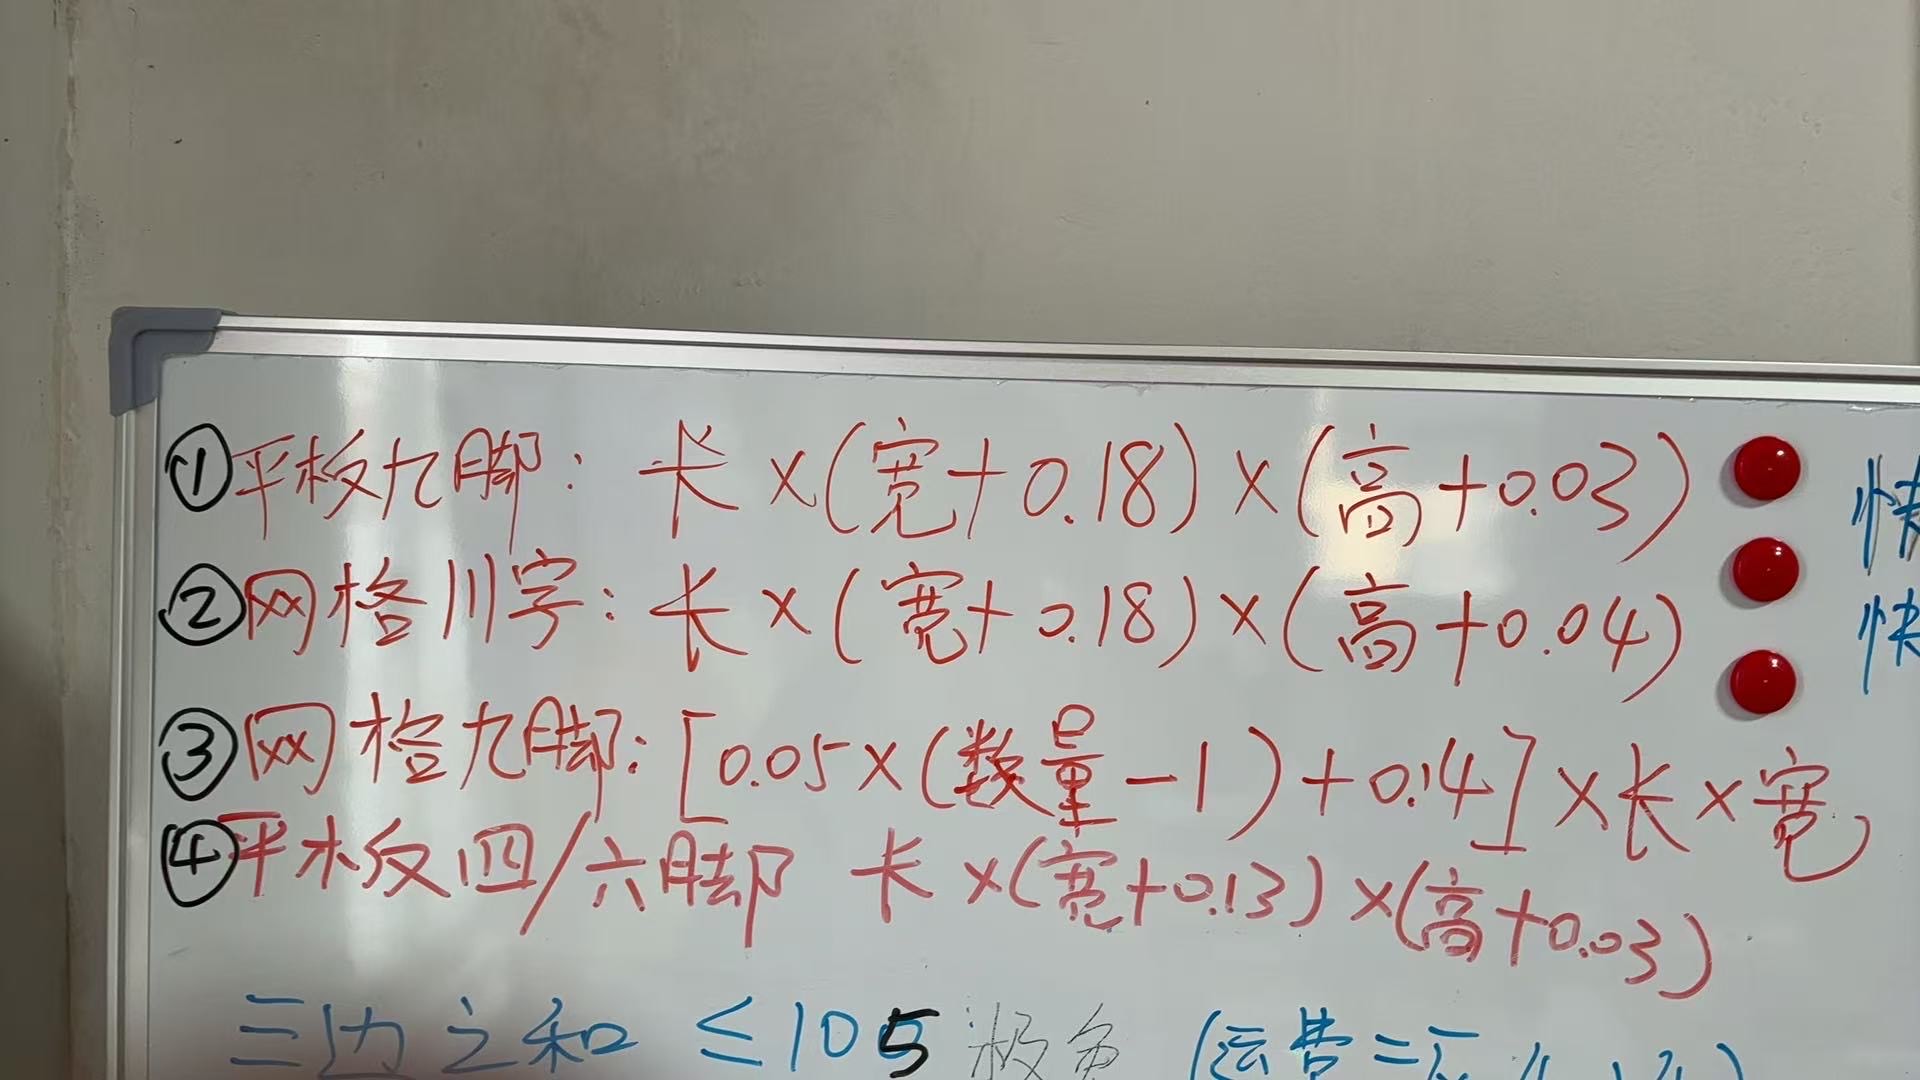 ①平板九脚: 长×(宽+0.18)×(高+0.03)
②网格川字: 长×(宽+0.18)×(高+0.04)
③网格九脚: [0.05×(数量-1)+0.14]×长×宽
④平板四/六脚 长×(宽+0.13)×(高+0.03)
三边之和 ≤105 极兔 (运费=
快
快